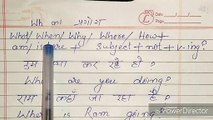 Wh का प्रयोग
What/When/Why/Where/How+
am/is/are + Subject+not+v-ing?
राम क्या कर रहे हो?
What are you doing?
राम कहाँ जा रहा है?
Where is Ram going?
PowerDirector